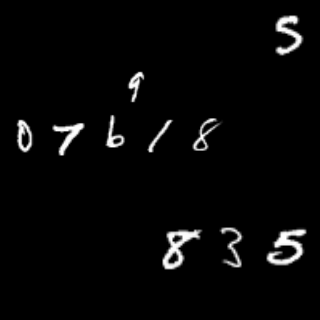 5
9
0 7 6 1 8
8 3 5